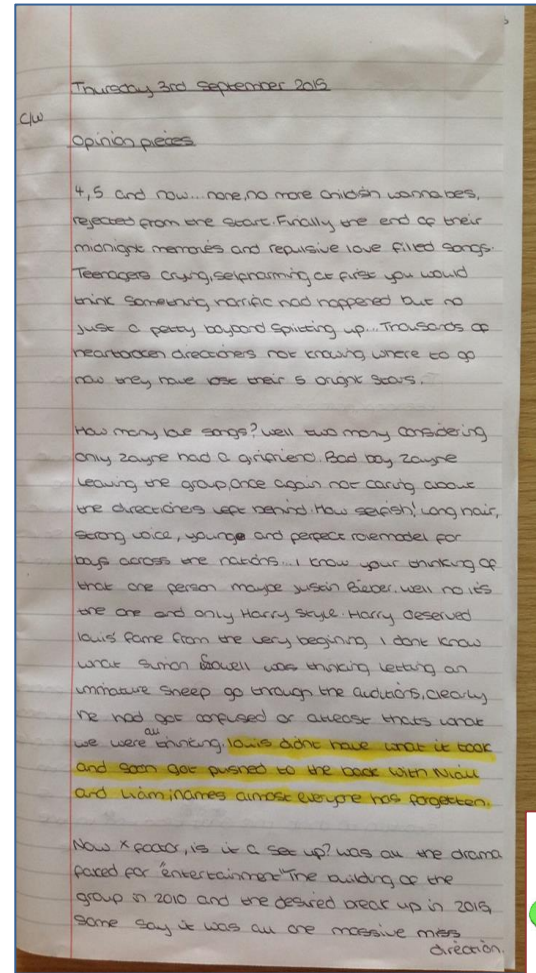 Thursday 3rd September 2015
C/W
Opinion pieces
4,5 and now... none, no more childish wannabes,
rejected from the start. Finally the end of their
midnight memories and repulsive love filled songs.
Teenagers crying, selfharming at first you would
think something horrific had happened but no
just a petty boyband splitting up... Thousands of
heartbroken directioners not knowing where to go
now they have lost their 5 bright stars.
How many love songs? well two many considering
only zayne had a girlfriend. Bad boy zayne
leaving the group, once again not caring about
the directioners left behind. How selfish! Long hair,
strong voice, younge and perfect rolemodel for
boys across the nations... I know your thinking of
that one person maybe justin Bieber. well no its
the one and only Harry Style. Harry deserved
louis' fame from the very begining, I dont know
what Simon Cowell was thinking letting an
immature sheep go through the auditions, clearly
he had got confused or atleast thats what
we were all thinking. louis didnt have what it took
and soon got pushed to the back with Niall
and Liam; names almost everyone has forgetten.
Now x factor, is it a set up? was all the drama
faced for "entertainment" The building of the
group in 2010 and the desired break up in 2015,
some say it was all one massive miss
direction.